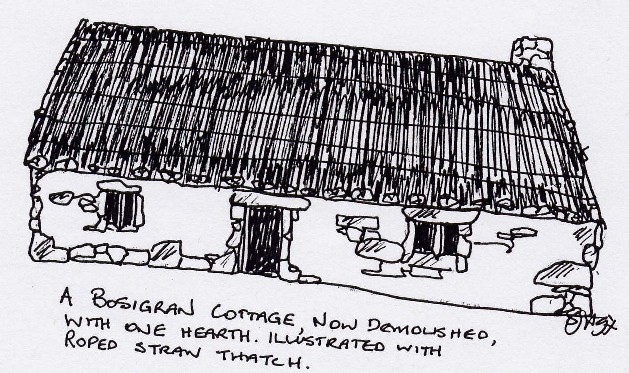 A BOSIGRAN COTTAGE, NOW DEMOLISHED,
WITH ONE HEARTH. ILLUSTRATED WITH
ROPED STRAW THATCH.